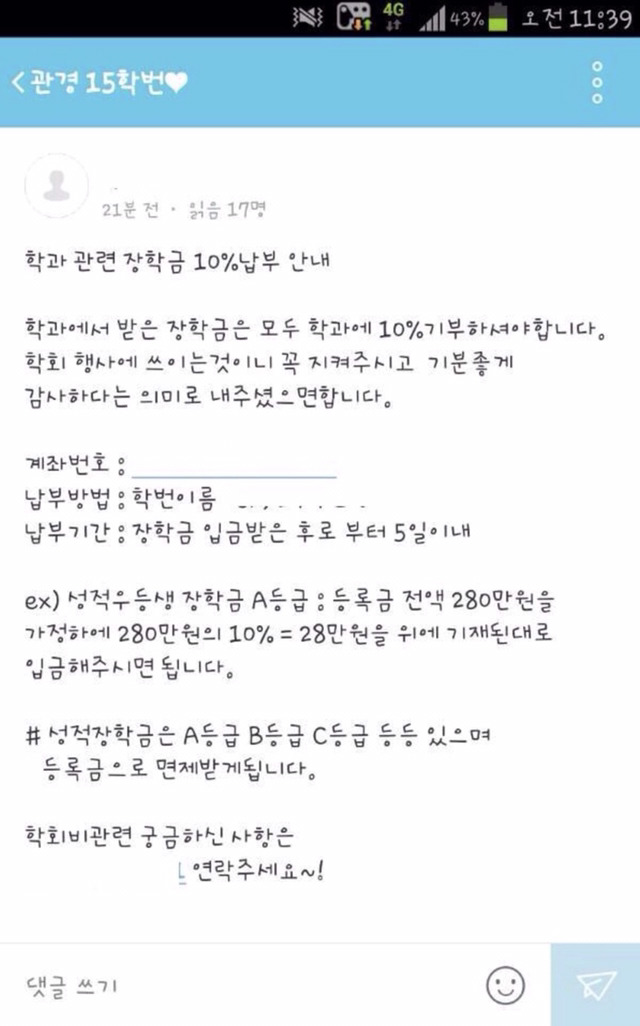 4G 43% 오전 11:39
< 관경 15학번♥
21분 전 · 읽음 17명
학과 관련 장학금 10%납부 안내
학과에서 받은 장학금은 모두 학과에 10%기부하셔야합니다.
학회 행사에 쓰이는것이니 꼭 지켜주시고 기분좋게
감사하다는 의미로 내주셨으면합니다.
계좌번호 :
납부방법 : 학번이름
납부기간 : 장학금 입금받은 후로 부터 5일이내
ex) 성적우등생 장학금 A등급 : 등록금 전액 280만원을
가정하에 280만원의 10% = 28만원을 위에 기재된대로
입금해주시면 됩니다.
# 성적장학금은 A등급 B등급 C등급 등등 있으며
등록금으로 면제받게됩니다.
학회비관련 궁금하신 사항은
연락주세요~!
댓글 쓰기